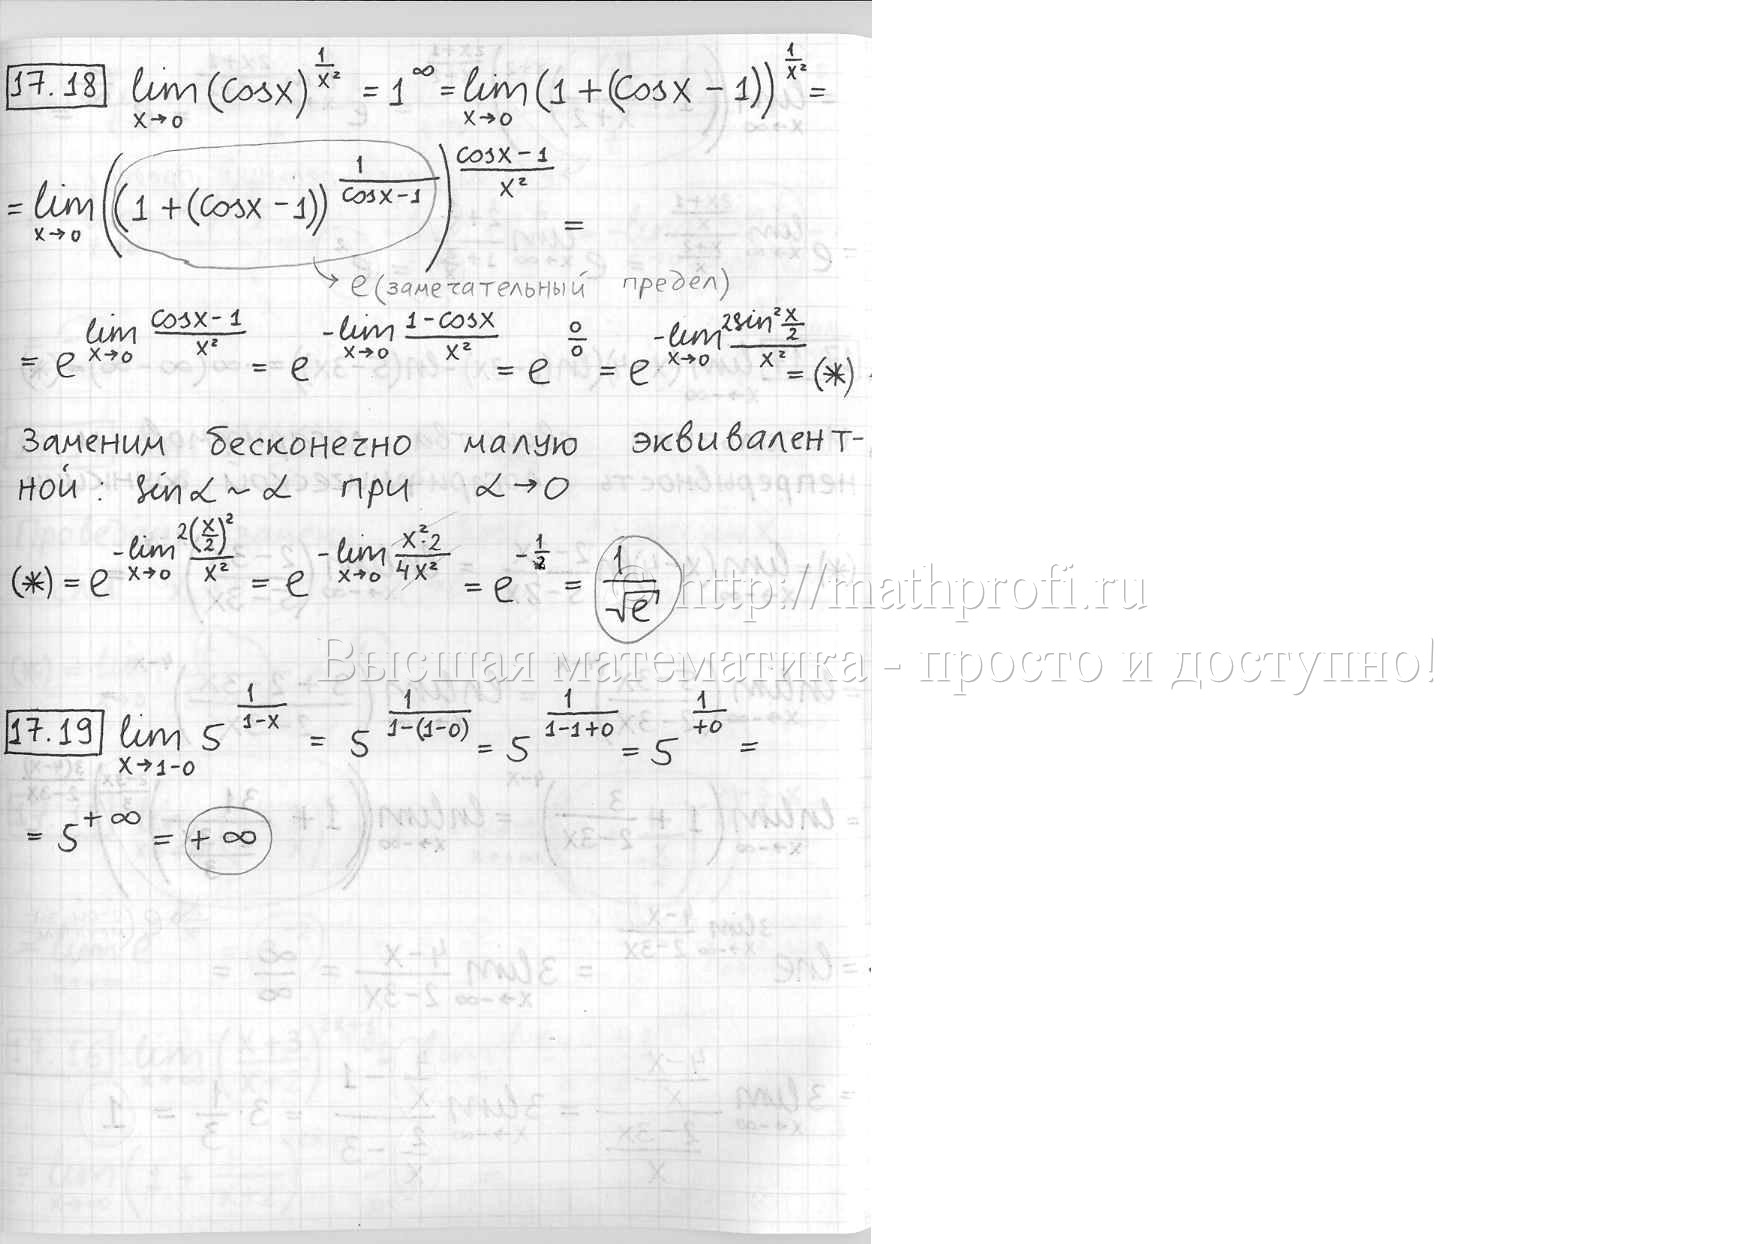 17.18 lim x→0 (cosx)^(1/x²) = 1^∞ = lim x→0 (1+(cosx-1))^(1/x²) =
= lim x→0 ((1+(cosx-1))^(1/(cosx-1)))^((cosx-1)/x²) =
→ e (замечательный предел)
= e^(lim x→0 (cosx-1)/x²) = e^(-lim x→0 (1-cosx)/x²) = e^(0/0) = e^(-lim x→0 (2sin²(x/2))/x²) = (*)
Заменим бесконечно малую эквивалент-
ной: sinα ~ α при α→0
(*) = e^(-lim x→0 (2(x/2)²)/x²) = e^(-lim x→0 (x²·2)/(4x²)) = e^(-1/2) = 1/√e
© http://mathprofi.ru
Высшая математика - просто и доступно!
17.19 lim x→1-0 5^(1/(1-x)) = 5^(1/(1-(1-0))) = 5^(1/(1-1+0)) = 5^(1/+0) =
= 5^(+∞) = +∞